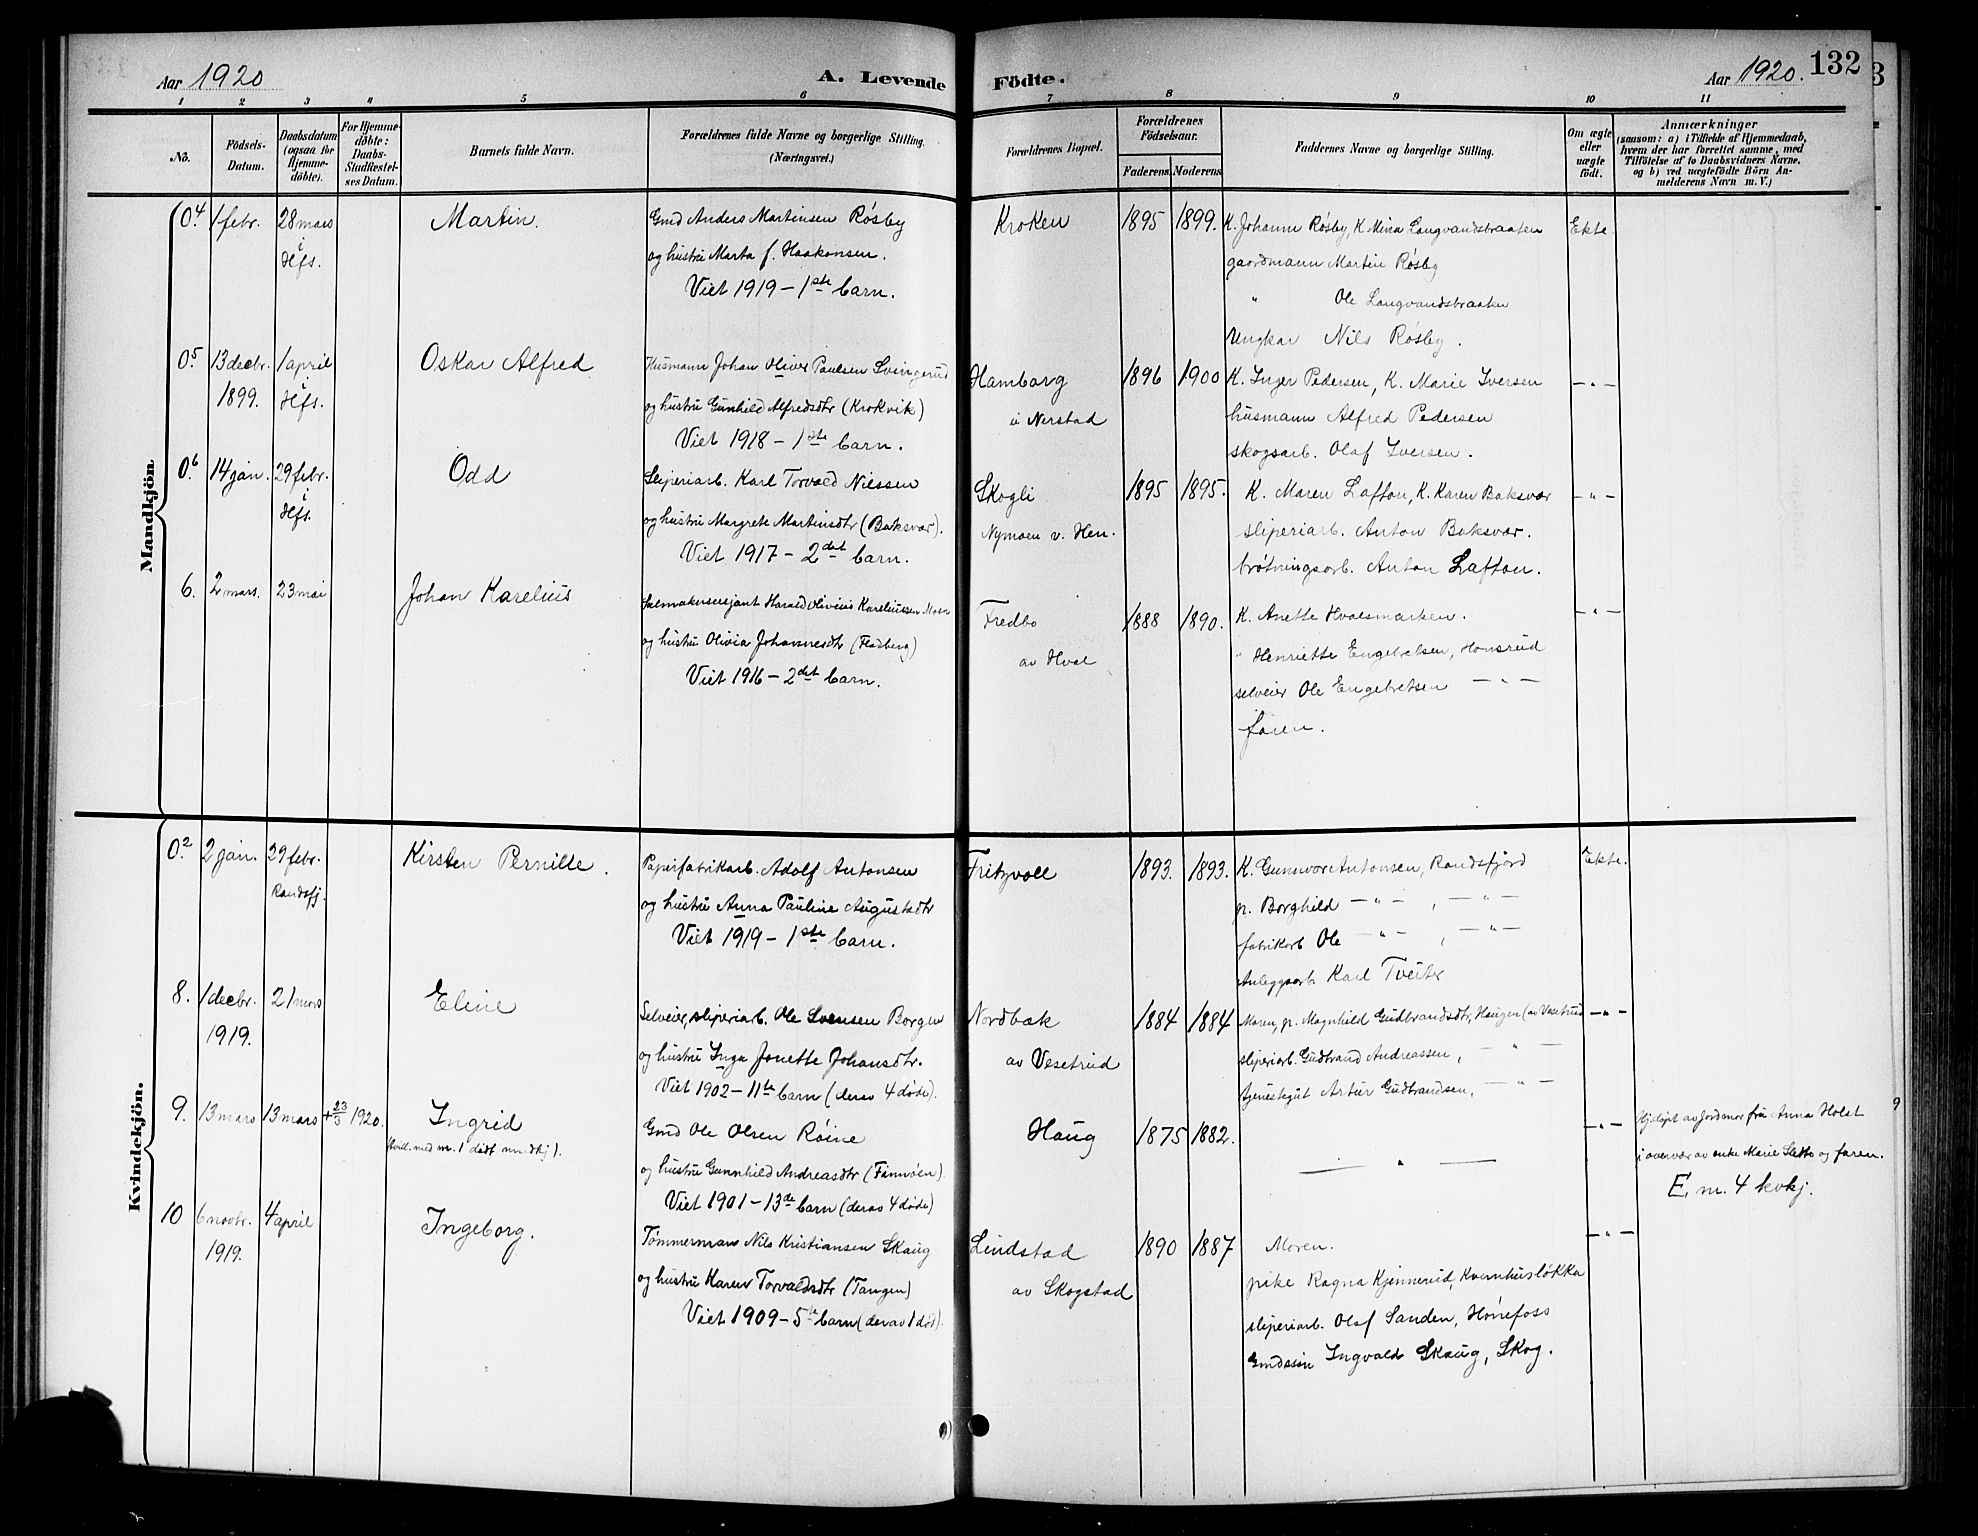 Aar 1920
A. Levende
Födte.
Aar 1920.
132
1 2 3 4 5 6 7 8 9 10 11
No.
Födsels-
Datum.
Daabsdatum
(ogsaa for
Hjemme-
döbte).
For Hjemme-
döbte:
Daabs-
Stadfæstel-
ses Datum.
Barnets fulde Navn.
Forældrenes fulde Navne og borgerlige Stilling.
(Næringsvei.)
Forældrenes Bopæl.
Forældrenes
Födselsaar.
Faderens. Moderens.
Faddernes Navne og borgerlige Stilling.
Om ægte
eller
uægte
födt.
Anmærkninger
(saasom: a) i Tilfælde af Hjemmedaab,
hvem der har forrettet samme, med
Tilföielse af to Daabsvidners Navne,
og b) ved uægtefödte Börn An-
melderens Navn m. V.)
Mandkjön.
04. 1 febr. 28 mars i Hfs. Martin.
Gmd Anders Martinsen Røsby
og hustru Marta f. Haakonsen.
Viet 1919 – 1ste barn.
Kroken 1895 1899.
K. Johanne Røsby, K Mina Langvandsbraaten
gaardmann Martin Røsby
" Ole Langvandsbraaten
Ungkar Nils Røsby.
Ekte
05. 13 decbr. 1899. 1 april i Hfs. Oskar Alfred
Husmann Johan Oliver Paulsen Svingerud
og hustru Gunhild Alfredsdtr (Krokvik)
Viet 1918 – 1ste barn.
Hamborg
u Nerstad
1896 1900
K. Inger Pedersen, K. Marie Iversen
husmann Alfred Pedersen
skogsarb. Olaf Iversen.
— " —
06 14 jan. 29 febr. i Hfs. Odd
Sliperiarb. Karl Torvald Nilssen
og hustru Margrete Martinsdtr (Baksvær).
Viet 1917 – 2det barn.
Skogli
Nymoen v. Hen.
1895 1895.
K. Maren Lafton, K. Karen Baksvær
sliperiarb. Anton Baksvær.
brøtningsarb. Anton Lafton.
— " —
6. 2 mars. 23 mai Johan Karelius
Salmakersersjant Harald Olivius Kareliussen Moen
og hustru Olivia Johannesdtr (Fladberg)
Viet 1916 – 2det barn.
Fredbo
av Hval
1888 1890.
K. Anette Hvalsmarken.
" Henriette Engebretsen, Honsrud
selveier Ole Engebretsen — " —
faren.
— " —
Kvindekjön.
02. 2 jan. 29 febr. Randsfj. Kirsten Pernille.
Papirfabrikarb. Adolf Antonsen
og hustru Anna Pauline Augustsdtr
Viet 1919 – 1ste barn.
Fritzvold 1893. 1893.
K. Gunnvor Antonsen, Randsfjord
p. Borghild — " — , — " —
fabrikarb Ole — " — , — " —
Anleggsarb. Karl Tveiter
Ekte.
8. 1 decbr. 1919. 21 mars Eline
Selveier, sliperiarb. Ole Svensen Borgen
og hustru Inga Jonette Johansdtr.
Viet 1902 – 11te barn (derav 4 døde).
Nordbæk
av Vesetrud
1884 1884
Moren, p. Magnhild Gudbrandsdtr, Haugen (av Vesetrud
sliperiarb. Gudbrand Andreassen, — " —
tjenestegut Artur Gudbrandsen, — " —
— " —
9. 13 mars 13 mars + 23/3 1920. Ingrid
(tvill. med nr. 1 dødf. mandkj).
Gmd Ole Olsen Røine
og hustru Gunnhild Andreasdtr (Finnøen).
Viet 1901 – 13de barn (derav 4 døde)
Haug 1875 1882.
— " —
— " —
Hj.døpt av jordmor fru Anna Holst
i overvær av enke Marie Sletto og faren.
E. m. 4 kvkj.
9
10 6 novbr. 1919. 4 april Ingeborg.
Tømmermann Nils Kristiansen Skaug
og hustru Karen Torvaldsdtr (Tangen)
Viet 1909 – 5te barn (derav 1 død).
Lindstad
av Skogstad
1890 1887
Moren.
pike Ragna Kjennerud, Kvernhusløkka
sliperiarb. Olaf Sanden, Hønefoss
Gmdssøn Ingvald Skaug, Skog.
— " —